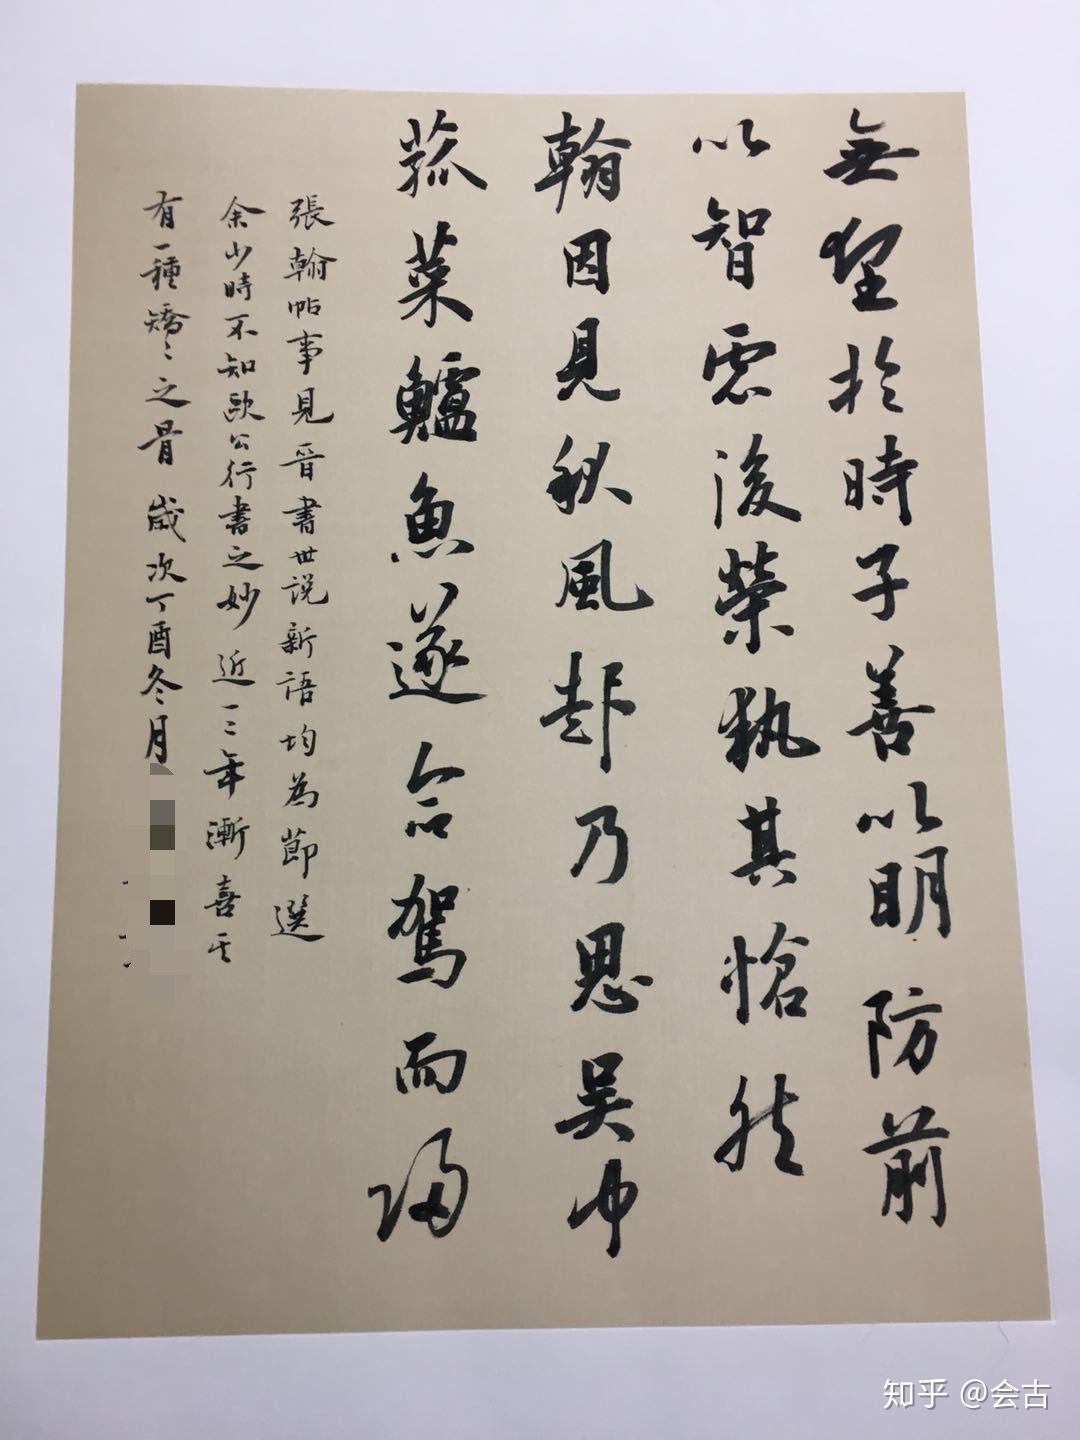 無望於時子善以明防前
以智慮後榮執其愴然
翰因見秋風起乃思吴中
菰菜鱸魚遂命駕而歸
張翰帖事見晉書世説新語均為節選
余少時不知歐公行書之妙近二三年漸喜其
有一種矯〻之骨歲次丁酉冬月
知乎 @会古